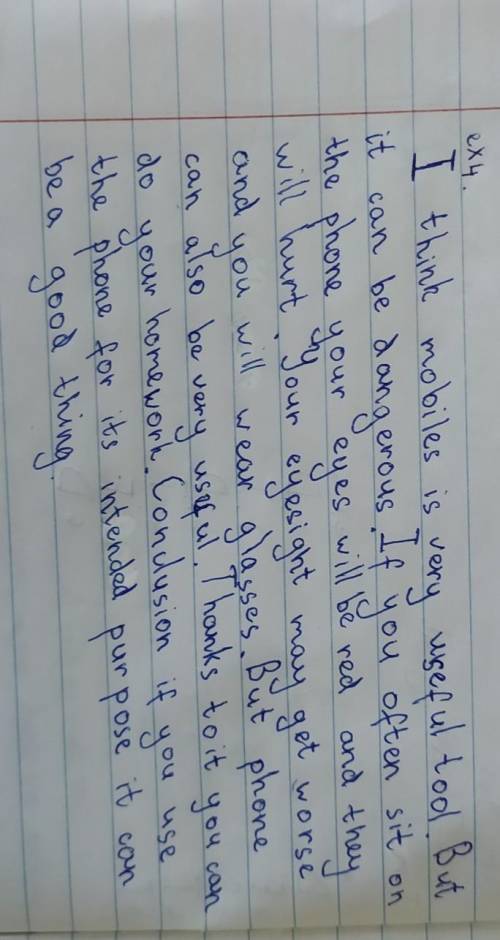 ex4.
I think mobiles is very useful tool. But
it can be dangerous. If you often sit on
the phone your eyes will be red and they
will hurt, your eyesight may get worse
and you will wear glasses. But phone
can also be very useful. Thanks to it you can
do your homework. Conclusion if you use
the phone for its intended purpose it can
be a good thing.